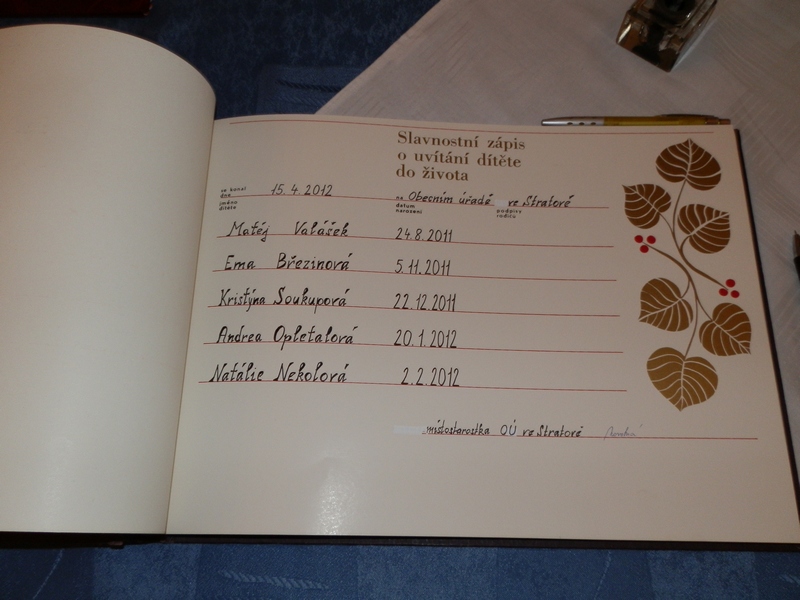 Slavnostní zápis
o uvítání dítěte
do života
se konal
dne 15. 4. 2012 na Obecním úřadě ve Stratově
jméno
dítěte datum
narození podpisy
rodičů
Matěj Valášek 24.8.2011
Ema Březinová 5.11.2011
Kristýna Soukupová 22.12.2011
Andrea Opletalová 20.1.2012
Natálie Nekolová 2.2.2012
místostarostka OÚ ve Stratově